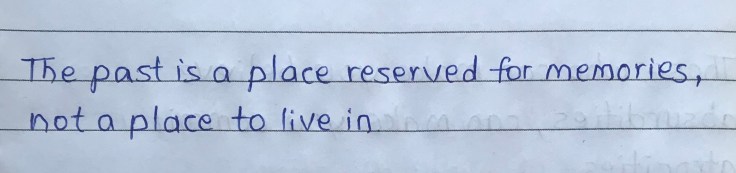 The past is a place reserved for memories,
not a place to live in